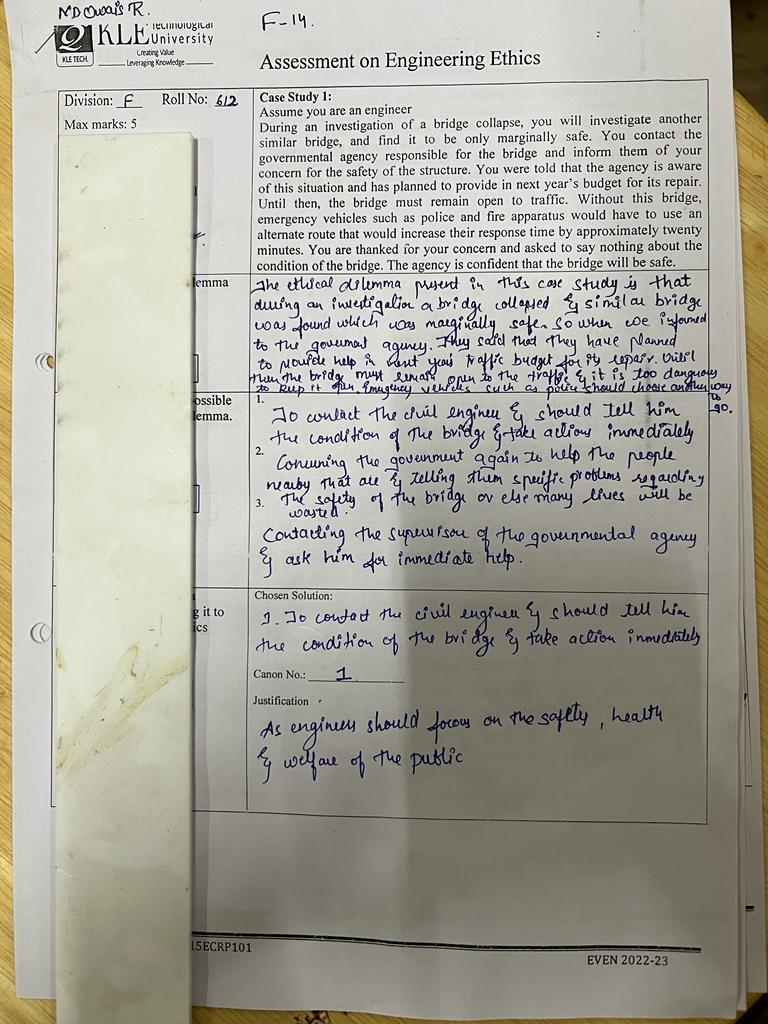 MD Owais R.
F-14.
KLE Technological
University
Creating Value
Leveraging Knowledge
KLE TECH.
Assessment on Engineering Ethics
Division: F Roll No: 612
Max marks: 5
Case Study 1:
Assume you are an engineer
During an investigation of a bridge collapse, you will investigate another
similar bridge, and find it to be only marginally safe. You contact the
governmental agency responsible for the bridge and inform them of your
concern for the safety of the structure. You were told that the agency is aware
of this situation and has planned to provide in next year's budget for its repair.
Until then, the bridge must remain open to traffic. Without this bridge,
emergency vehicles such as police and fire apparatus would have to use an
alternate route that would increase their response time by approximately twenty
minutes. You are thanked for your concern and asked to say nothing about the
condition of the bridge. The agency is confident that the bridge will be safe.
lemma
The ethical dilemma present in this case study is that
during an investigation a bridge collapsed & similar bridge
was found which was marginally safe. So when we informed
to the goverment agency. They said that they have planned
to provide help in next years traffic budget for its repair. Until
then the bridge must remain open to the traffic & it is too dangerous
to keep it open. Emergency vehicles such as police should choose another way
to go.
ossible
lemma.
1.
To contact the civil engineer & should tell him
the condition of the bridge & take actions immediately
2.
the government again to help the people
nearby that are & telling them specific problems regarding
3. The safety of the bridge or else many lives will be
wasted.
Contacting the supervisor of the governmental agency
& ask him for immediate help.
g it to
ics
Chosen Solution:
1. To contact the civil engineer & should tell him
the condition of the bridge & take action immediately
Canon No.: 1
Justification
As engineers should focus on the safety, health
& welfare of the public
15ECRP101
EVEN 2022-23